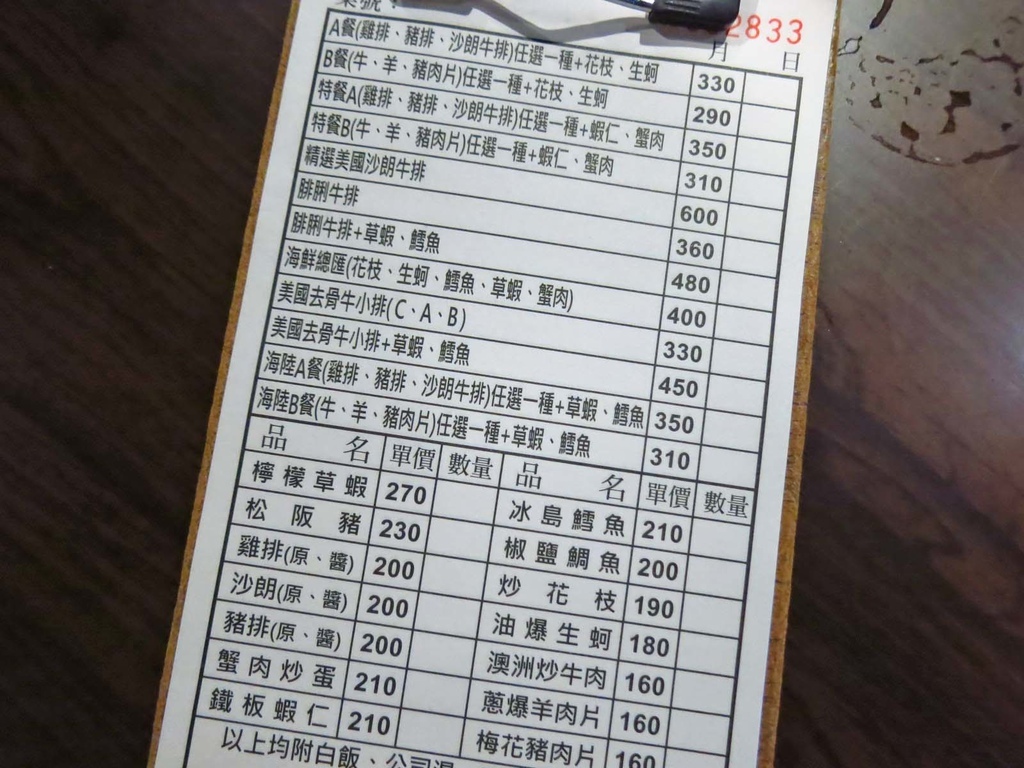 桌號：
2833
月 日
A餐(雞排、豬排、沙朗牛排)任選一種+花枝、生蚵 330
B餐(牛、羊、豬肉片)任選一種+花枝、生蚵 290
特餐A(雞排、豬排、沙朗牛排)任選一種+蝦仁、蟹肉 350
特餐B(牛、羊、豬肉片)任選一種+蝦仁、蟹肉 310
精選美國沙朗牛排 600
腓脷牛排 360
腓脷牛排+草蝦、鱈魚 480
海鮮總匯(花枝、生蚵、鱈魚、草蝦、蟹肉) 400
美國去骨牛小排(C、A、B) 330
美國去骨牛小排+草蝦、鱈魚 450
海陸A餐(雞排、豬排、沙朗牛排)任選一種+草蝦、鱈魚 350
海陸B餐(牛、羊、豬肉片)任選一種+草蝦、鱈魚 310
品名 單價 數量 品名 單價 數量
檸檬草蝦 270 冰島鱈魚 210
松阪豬 230 椒鹽鯛魚 200
雞排(原、醬) 200 炒花枝 190
沙朗(原、醬) 200 油爆生蚵 180
豬排(原、醬) 200 澳洲炒牛肉 160
蟹肉炒蛋 210 蔥爆羊肉片 160
鐵板蝦仁 210 梅花豬肉片 160
以上均附白飯、公司湯